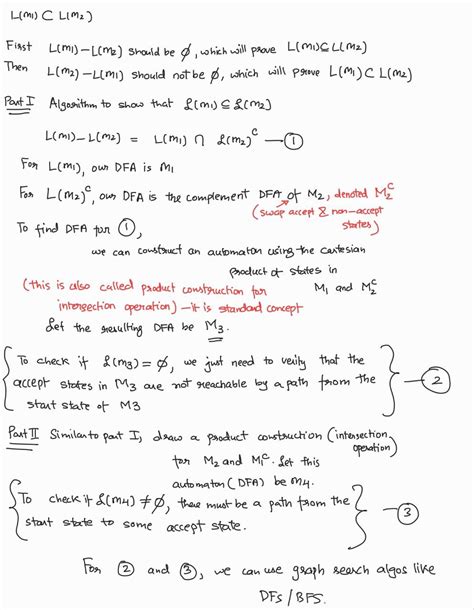 L(M1) ⊂ L(M2)
First L(M1) – L(M2) should be ∅, which will prove L(M1) ⊆ L(M2)
Then L(M2) – L(M1) should not be ∅, which will prove L(M1) ⊂ L(M2)
Part I Algorithm to show that L(M1) ⊆ L(M2)
L(M1) – L(M2) = L(M1) ∩ L(M2)ᶜ — ①
For L(M1), our DFA is M1
For L(M2)ᶜ, our DFA is the complement DFA of M2, denoted M2ᶜ
(swap accept & non-accept
states)
To find DFA for ①,
we can construct an automaton using the cartesian
product of states in
M1 and M2ᶜ
(this is also called product construction for
intersection operation) – it is standard concept
Let the resulting DFA be M3.
{ To check if L(M3) = ∅, we just need to verify that the
accept states in M3 are not reachable by a path from the
start state of M3 } — ②
Part II Similar to part I, draw a product construction (intersection
operation)
for M2 and M1ᶜ. Let this
automaton (DFA) be M4.
{ To check if L(M4) ≠ ∅, there must be a path from the
start state to some accept state. } — ③
For ② and ③, we can use graph search algos like
DFS/BFS.